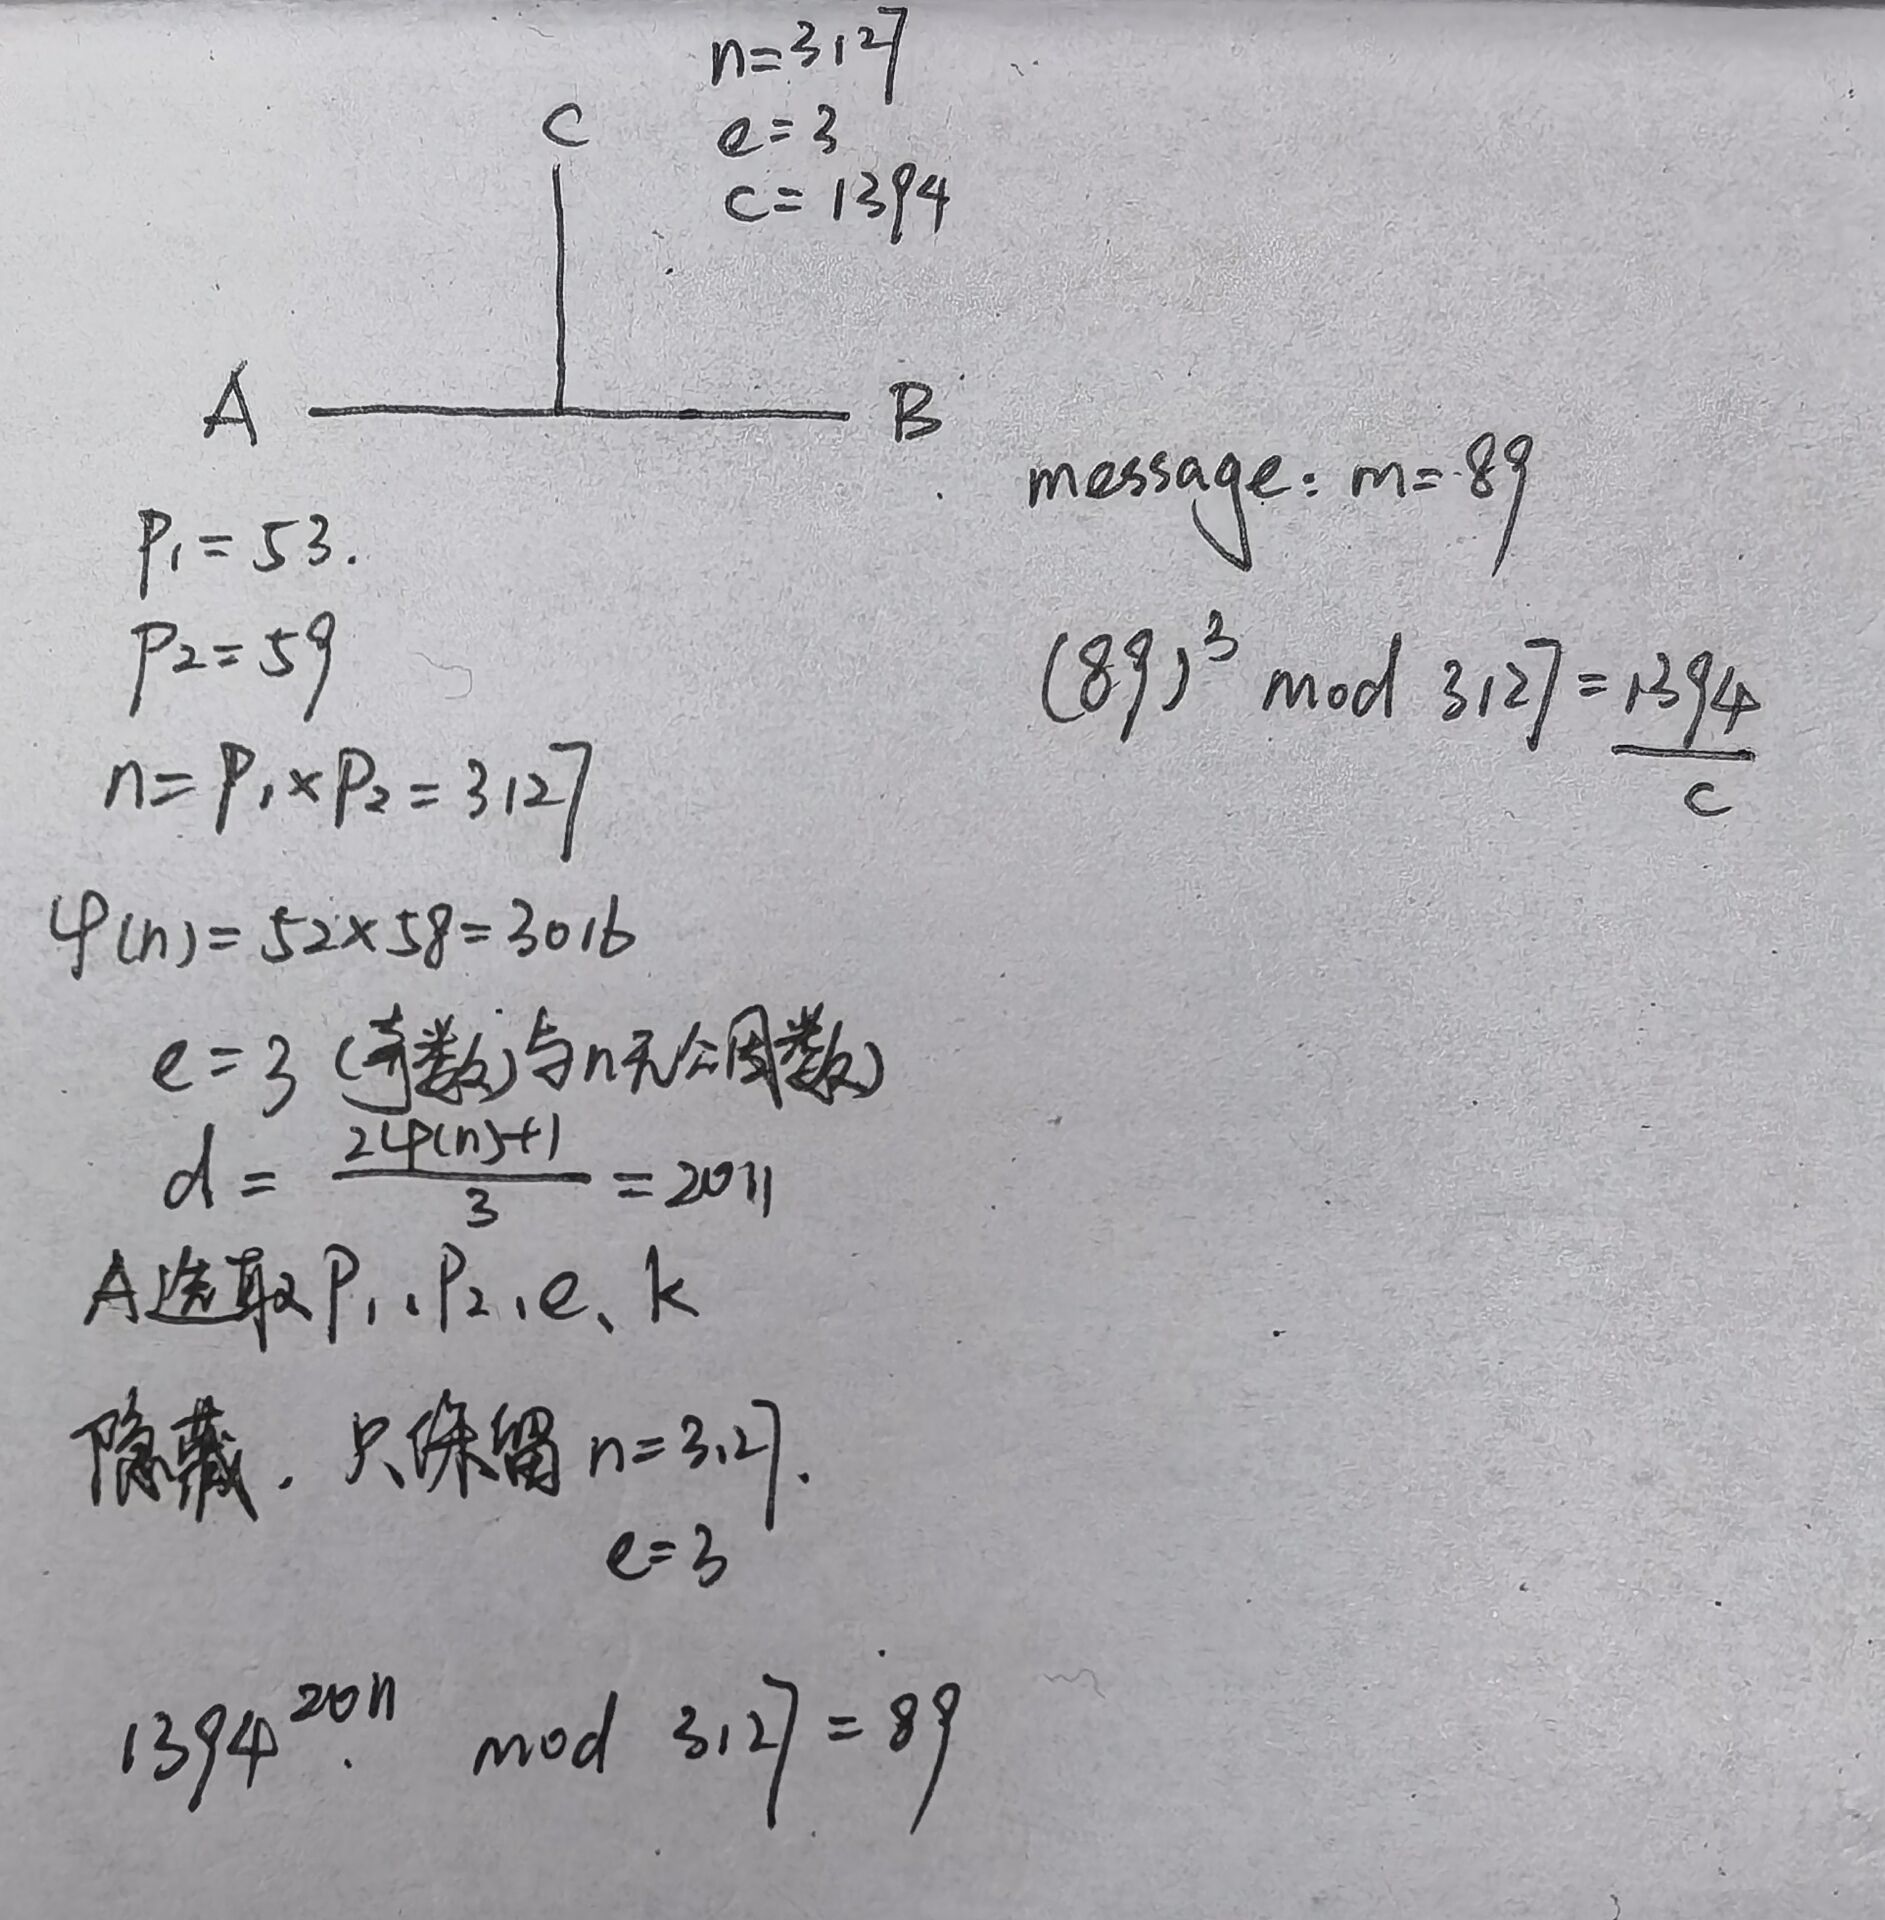 n=3127
e=3
c=1394
C
A
B
message: m=89
(89)³ mod 3127=1394
c
P₁=53.
P₂=59
n=P₁×P₂=3127
φ(n)=52×58=3016
e=3 (奇数)与n无公因数)
d= 2φ(n)+1 / 3 =2011
A选取P₁、P₂、e、k
隐藏.只保留n=3127.
e=3
1394²⁰¹¹ mod 3127=89